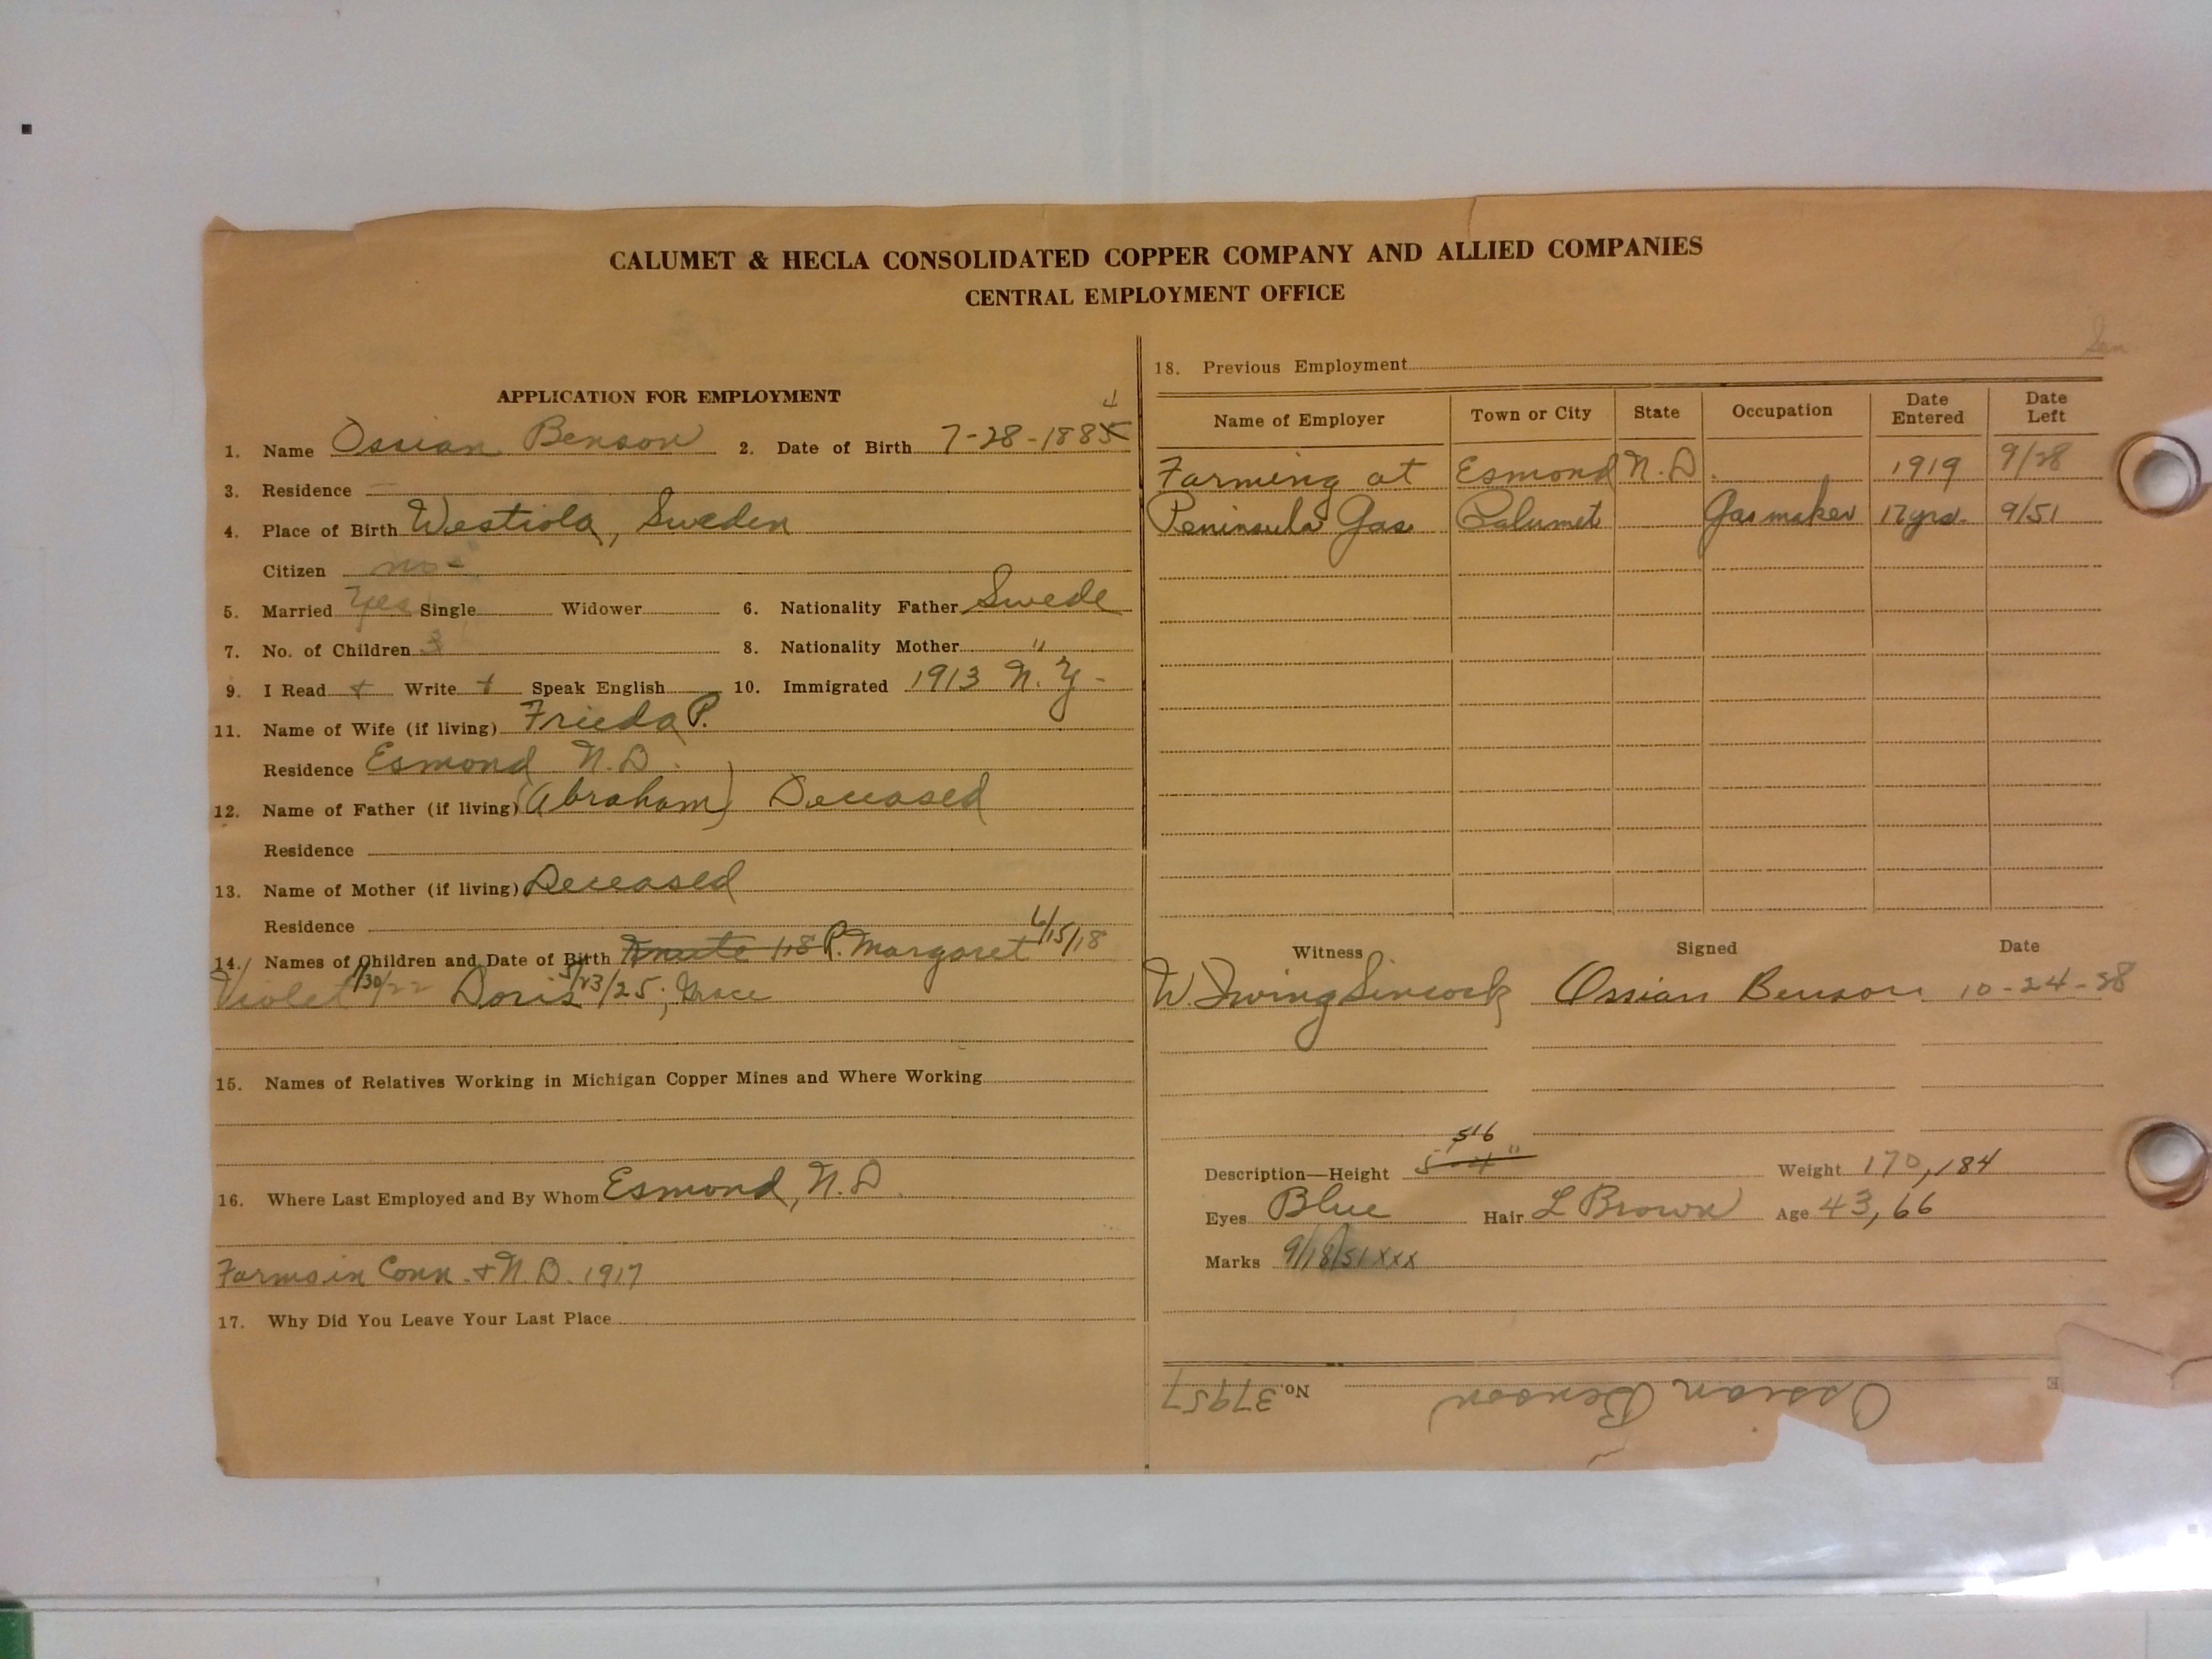 CALUMET & HECLA CONSOLIDATED COPPER COMPANY AND ALLIED COMPANIES
CENTRAL EMPLOYMENT OFFICE
APPLICATION FOR EMPLOYMENT
1. Name Ossian Benson 2. Date of Birth 7-28-1885 4
3. Residence
4. Place of Birth Westiola, Sweden
Citizen no
5. Married Yes Single Widower 6. Nationality Father Swede
7. No. of Children 3 8. Nationality Mother "
9. I Read + Write + Speak English 10. Immigrated 1913 N.Y-
11. Name of Wife (if living) Frieda P.
Residence Esmond N.D.
12. Name of Father (if living) (Abraham) Deceased
Residence
13. Name of Mother (if living) Deceased
Residence
14. Names of Children and Date of Birth P. Margaret 6/15/18
Violet /30/22 Doris 5/23/25; Grace
15. Names of Relatives Working in Michigan Copper Mines and Where Working
16. Where Last Employed and By Whom Esmond, N.D.
Farms in Conn. + N.D. 1917
17. Why Did You Leave Your Last Place
18. Previous Employment
Name of Employer Town or City State Occupation Date Entered Date Left
Farming at Esmond N.D. 1919 9/28
Peninsula Gas Calumet Gas maker 17 yrs. 9/51
Witness Signed Date
W Irving Sincock Ossian Benson 10-24-28
5'6
Description—Height 5-4" Weight 170, 184
Eyes Blue Hair L Brown Age 43, 66
Marks 9/18/51 xxx
Ossian Benson No. 37957